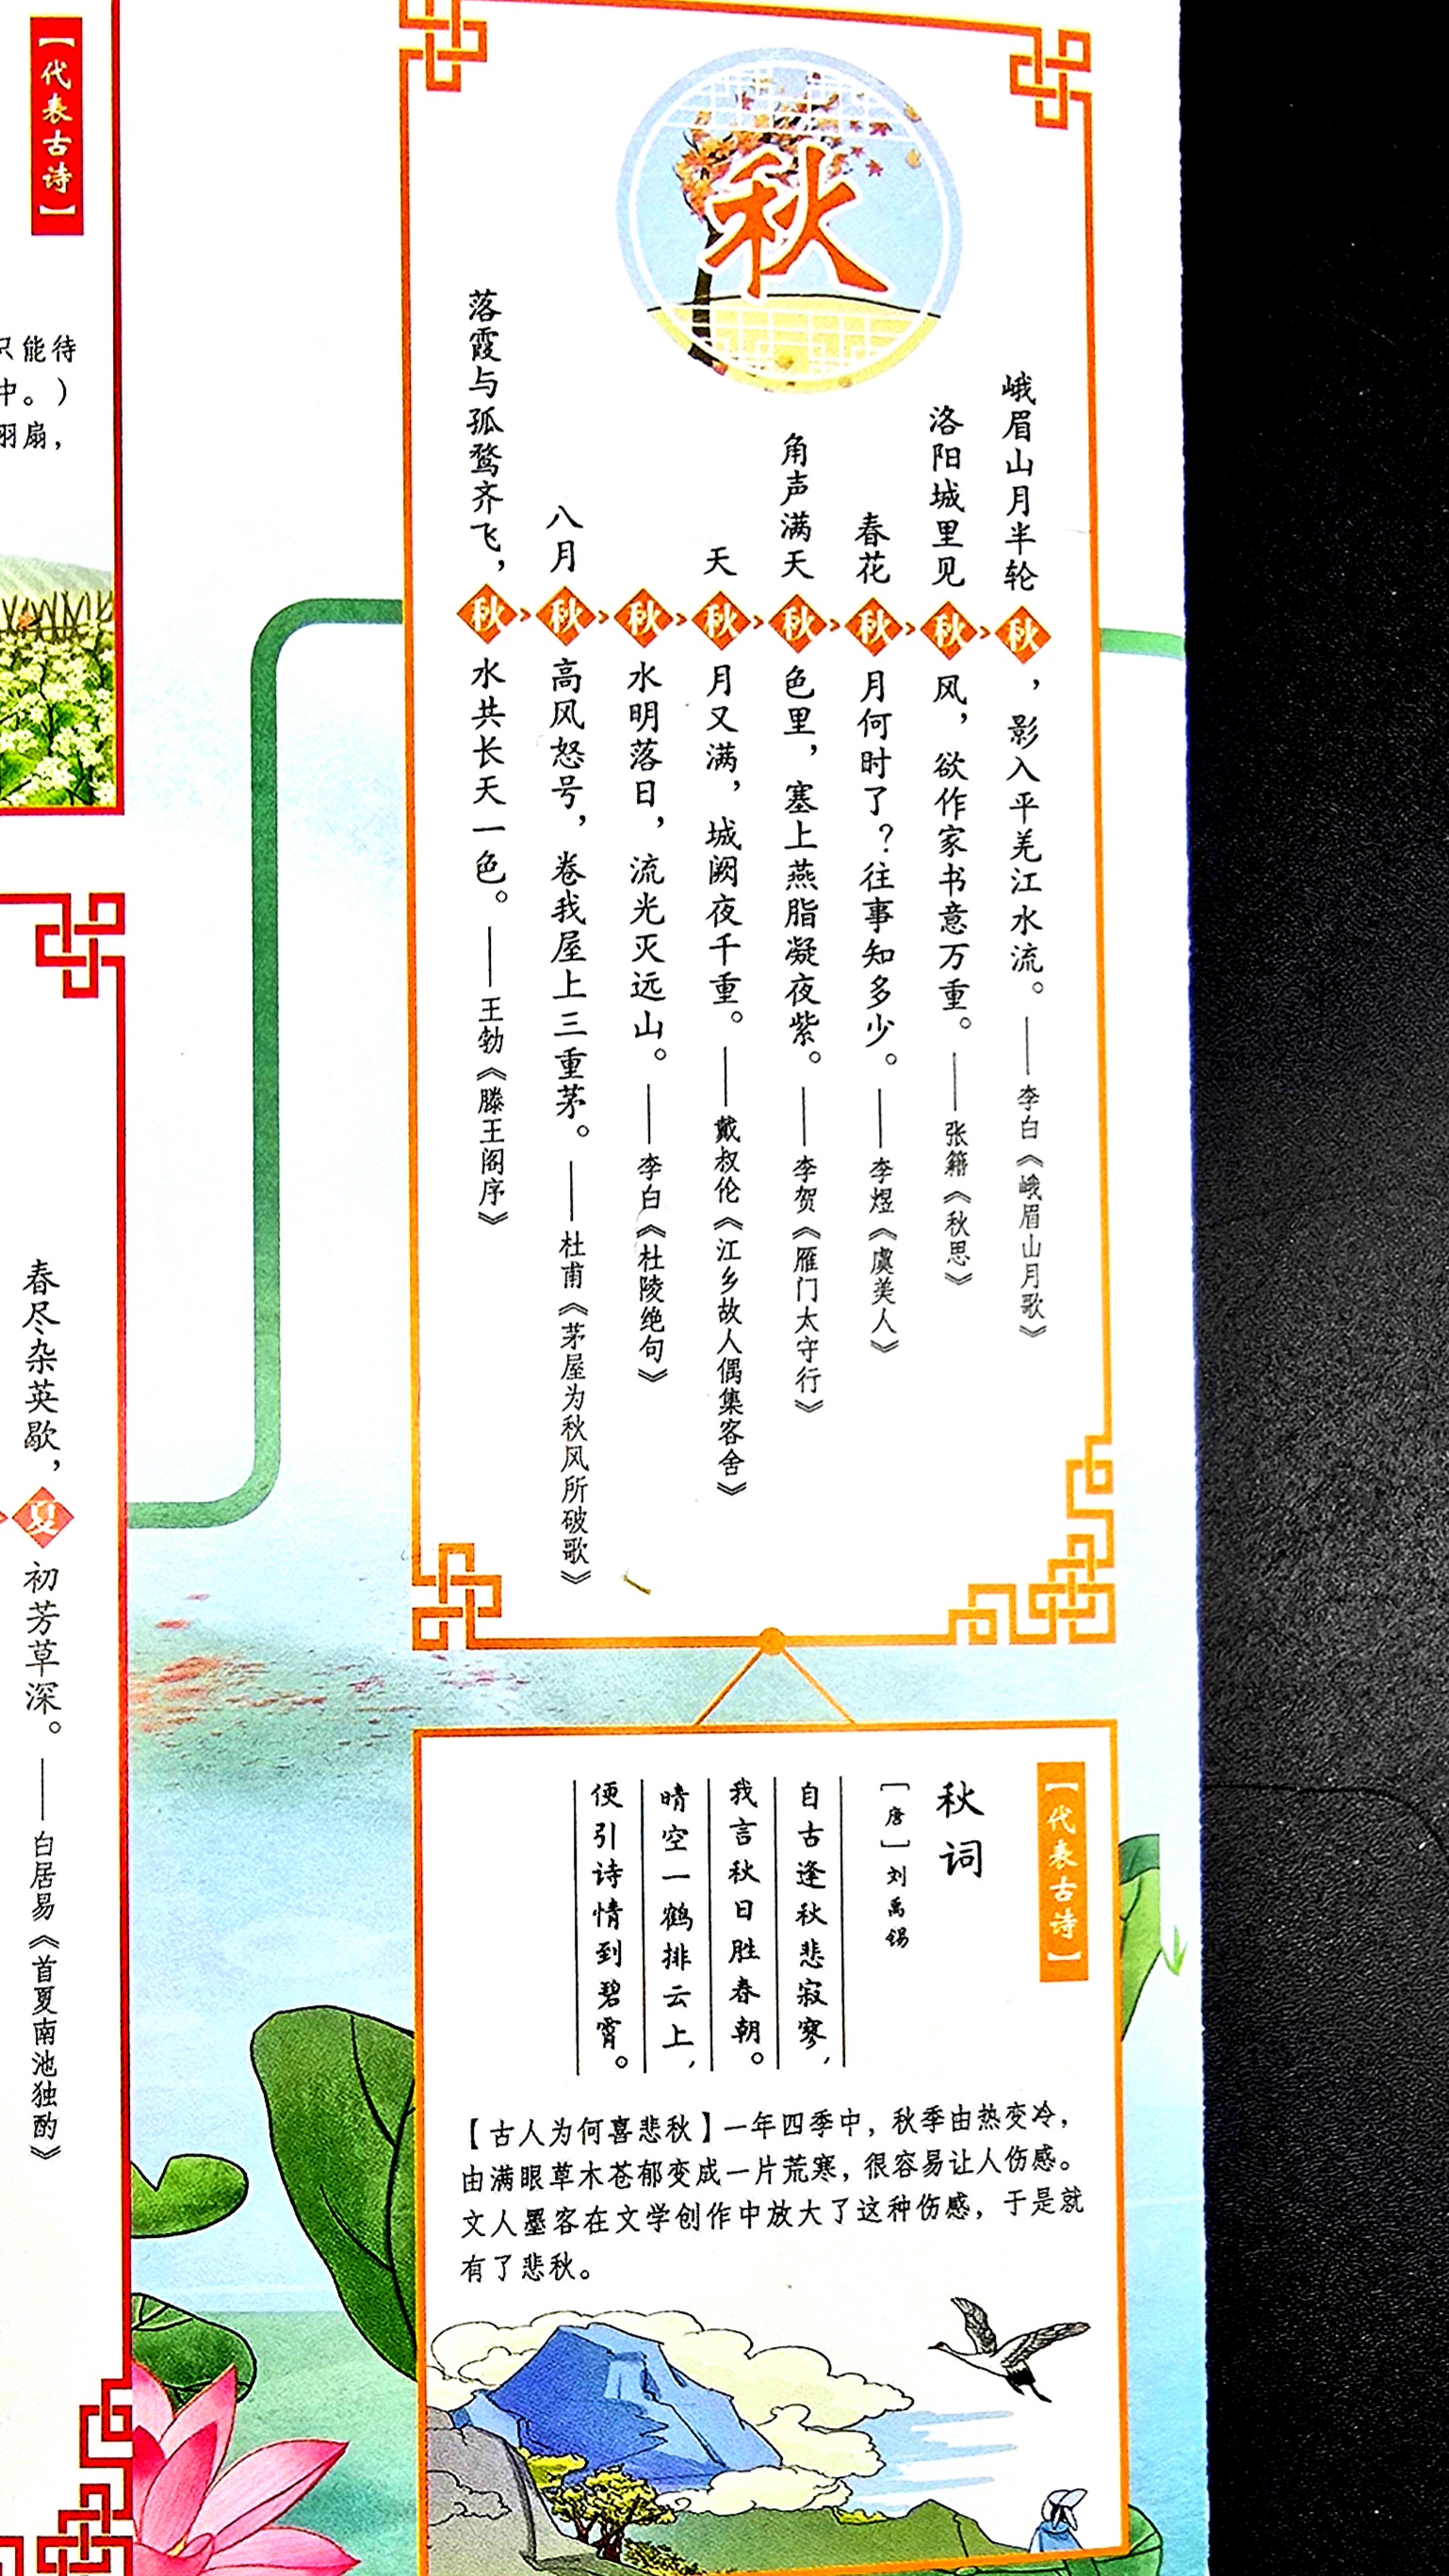 【代表古诗】
只能待
中。）
羽扇，
春尽杂英歇，夏初芳草深。——白居易《首夏南池独酌》
秋
落霞与孤鹜齐飞，秋水共长天一色。——王勃《滕王阁序》
八月秋高风怒号，卷我屋上三重茅。——杜甫《茅屋为秋风所破歌》
秋水明落日，流光灭远山。——李白《杜陵绝句》
天秋月又满，城阙夜千重。——戴叔伦《江乡故人偶集客舍》
角声满天秋色里，塞上燕脂凝夜紫。——李贺《雁门太守行》
春花秋月何时了？往事知多少。——李煜《虞美人》
洛阳城里见秋风，欲作家书意万重。——张籍《秋思》
峨眉山月半轮秋，影入平羌江水流。——李白《峨眉山月歌》
【代表古诗】
秋词
［唐］刘禹锡
自古逢秋悲寂寥，
我言秋日胜春朝。
晴空一鹤排云上，
便引诗情到碧霄。
【古人为何喜悲秋】一年四季中，秋季由热变冷，
由满眼草木苍郁变成一片荒寒，很容易让人伤感。
文人墨客在文学创作中放大了这种伤感，于是就
有了悲秋。